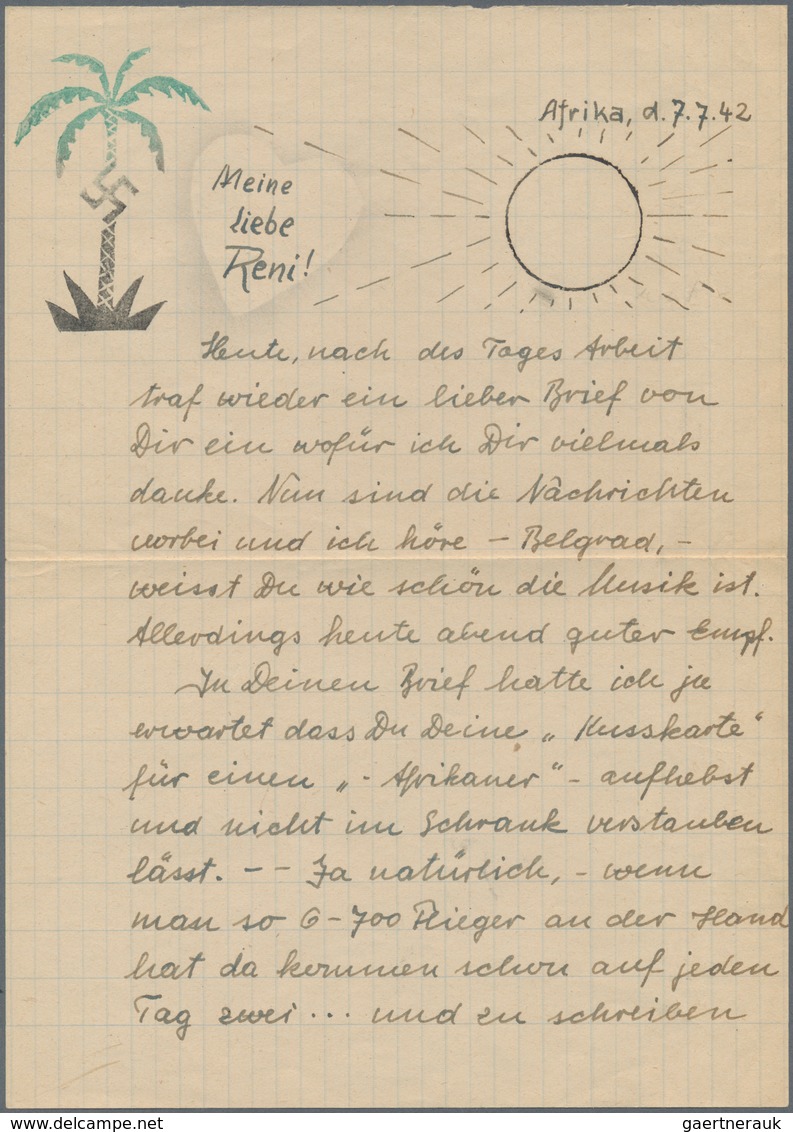 Afrika, d. 7.7.42
Meine
liebe
Reni!
Heute, nach des Tages Arbeit
traf wieder ein lieber Brief von
Dir ein wofür ich Dir vielmals
danke. Nun sind die Nachrichten
vorbei und ich höre – Belgrad, –
weisst Du wie schön die Musik ist.
Allerdings heute abend guter Empf.
In Deinen Brief hatte ich ja
erwartet dass Du Deine „Kusskarte"
für einen „- Afrikaner" – aufhebst
und nicht im Schrank verstauben
lässt. – – Ja natürlich, – wenn
man so 6–700 Flieger an der Hand
hat da kommen schon auf jeden
Tag zwei ... und zu schreiben
www.delcampe.net
gaertnerauk